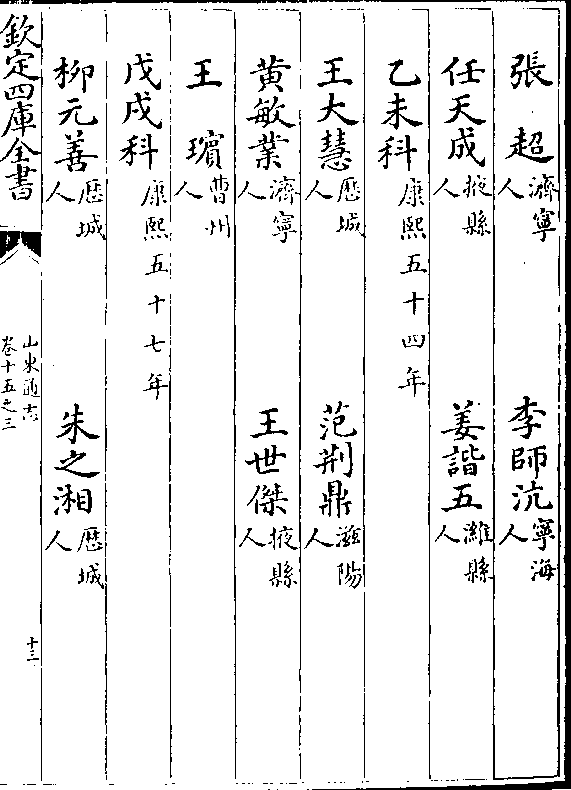 張　超濟寧人　李師沆寧海人
任天成掖縣人　姜諧五濰縣人
乙未科康熙五十四年
王大慧歷城人　范荆鼎滋陽人
黄敏業濟寧人　王世傑掖縣人
王　璸曹州人
戊戌科康熙五十七年
柳元善歷城人　朱之湘歷城人
欽定四庫全書
山東通志
卷十五之三
十三